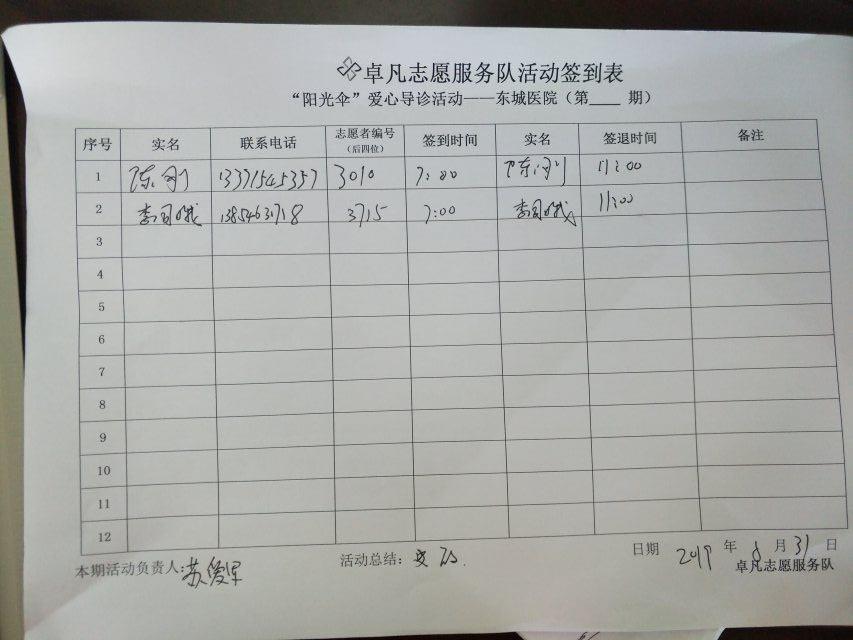 卓凡志愿服务队活动签到表
“阳光伞”爱心导诊活动——东城医院（第____期）
序号 实名 联系电话 志愿者编号（后四位） 签到时间 实名 签退时间 备注
1 陈刚 13371545357 3010 7:00 陈刚 11:00
2 李月娥 13854631718 3715 7:00 李月娥 11:00
3
4
5
6
7
8
9
10
11
12
本期活动负责人: 苏俊军 活动总结: 日期 2019 年 8 月 31 日
卓凡志愿服务队